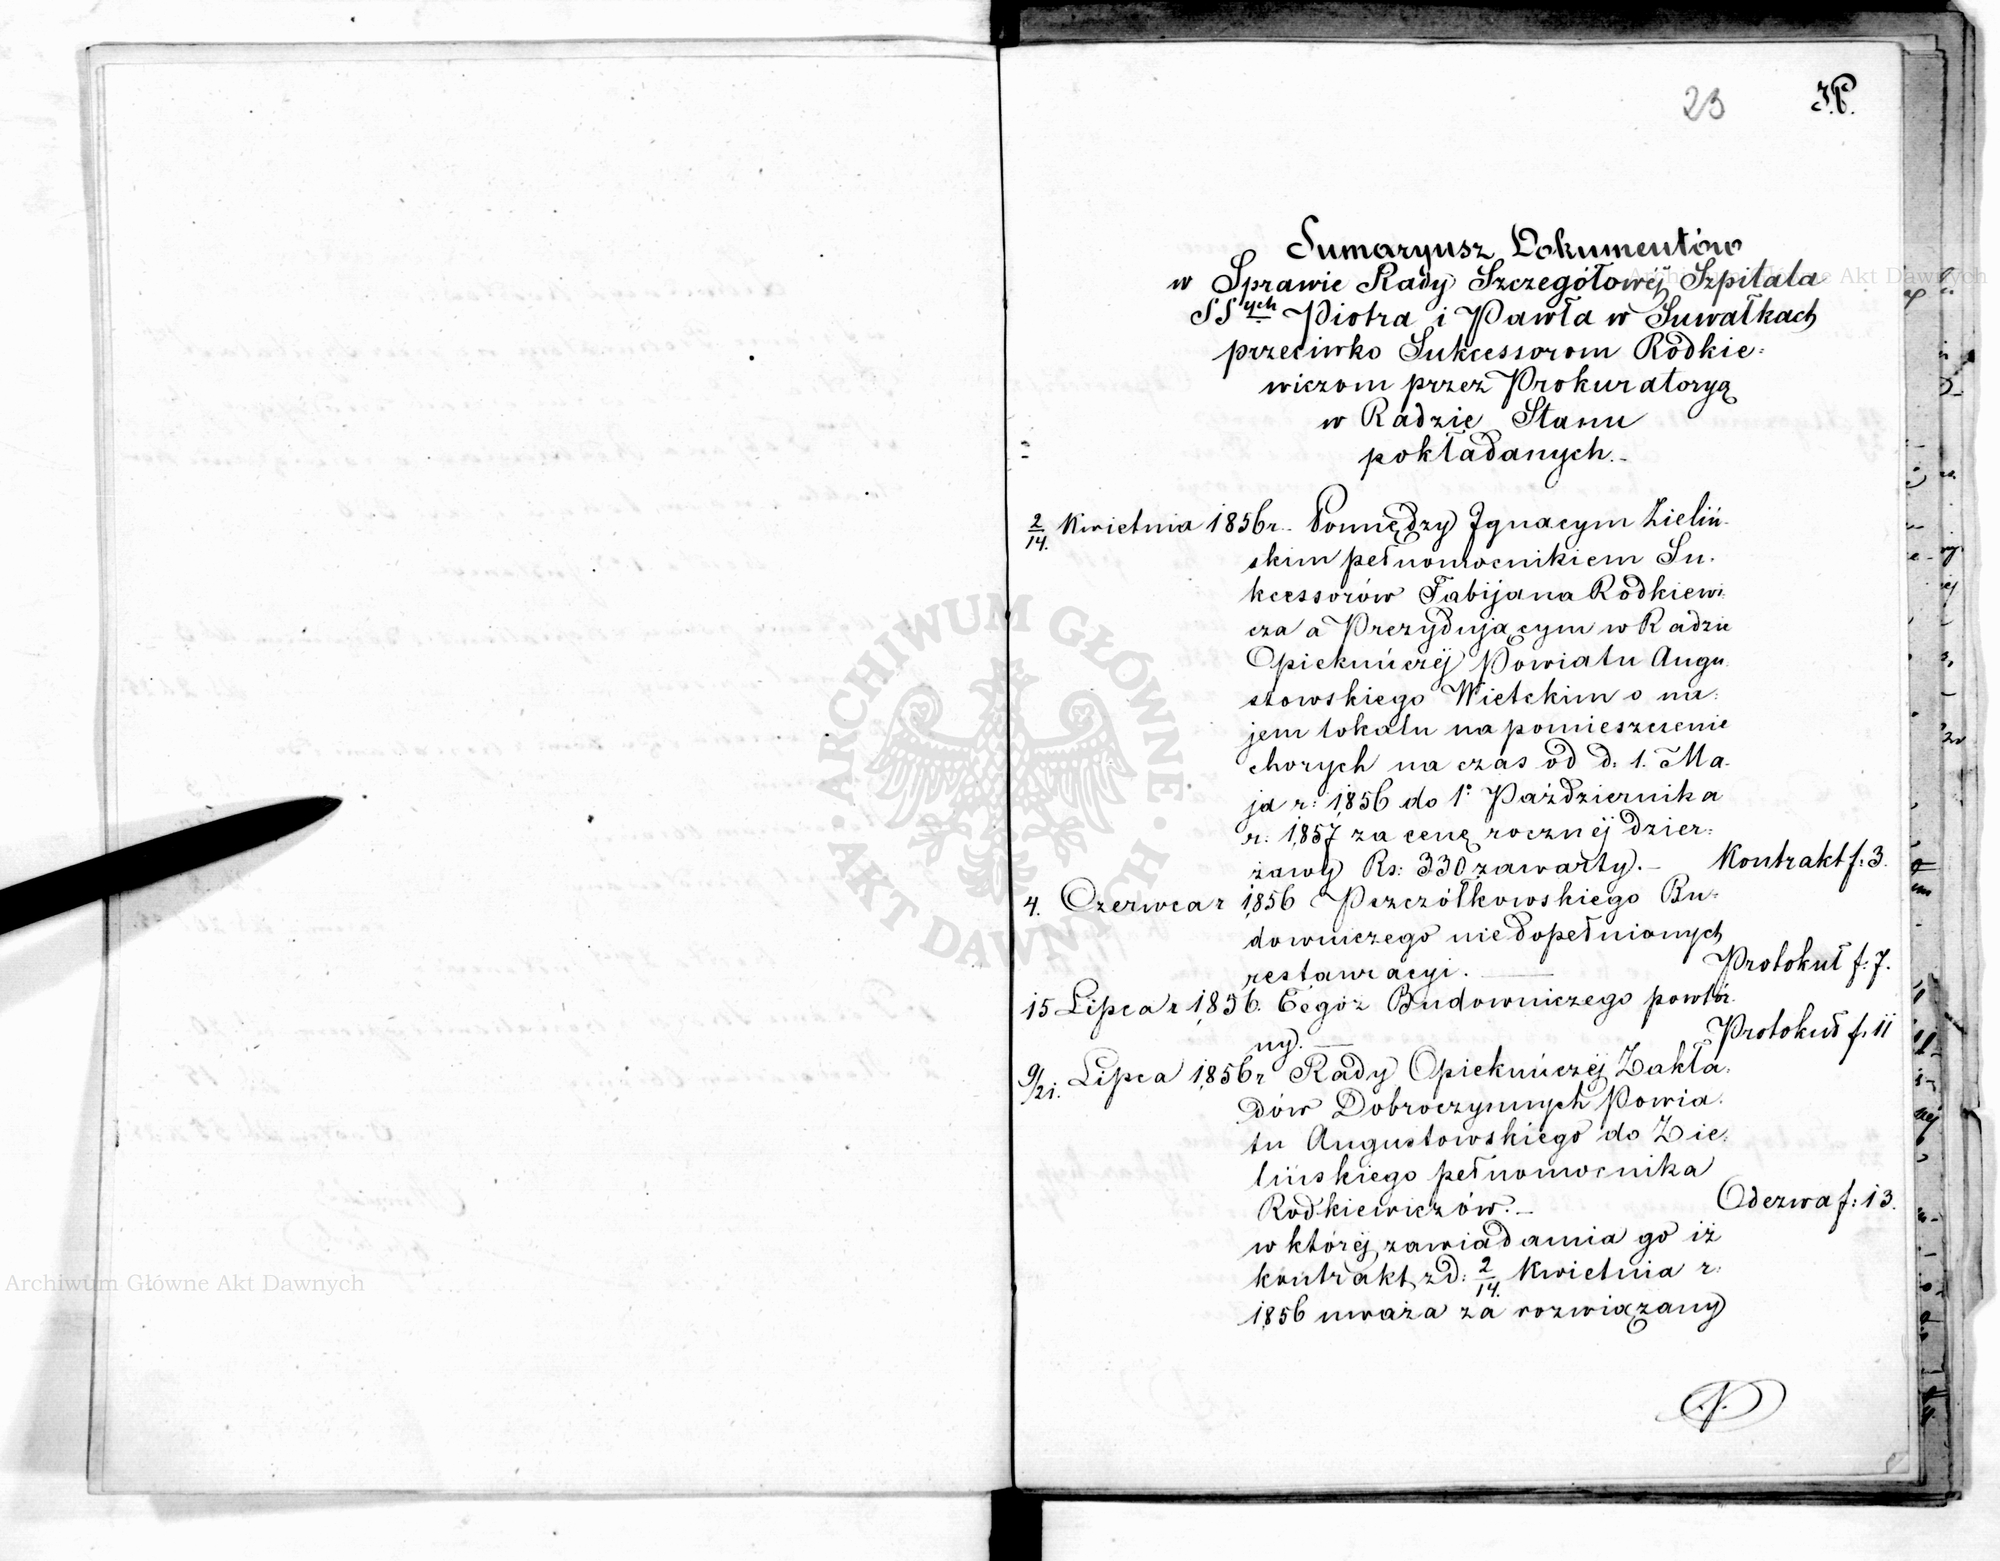 23
Sumaryusz Dokumentów
w Sprawie Rady Szczegółowéj Szpitala
SSych Piotra i Pawła w Suwałkach
przeciwko Sukcessorom Rodkie:
wiczom przez Prokuratoryą
w Radzie Stanu
pokładanych.-
2/14. Kwietnia 1856 r. Pomiędzy Ignacym Zieliń-
skim pełnomocnikiem Su-
kcessorów Fabijana Rodkiewi-
cza a Prezydującym w Radzie
Opiekuńczéj Powiatu Augu-
stowskiego Wieteckim o na:
jem lokalu na pomieszczenie
chorych na czas od d. 1. Ma-
ja r: 1856 do 1° Października
r: 1857 za cenę rocznéj dzier:
żawy Rs: 330 zawarty.- Kontrakt f: 3.
4. Czerwca r 1856 Pszczółkowskiego Bu-
downiczego niedopełnionych
restauracyi. Protokuł f: 7.
15 Lipca r 1856. Tegoż Budowniczego powtór-
ny.- Protokuł f. 11
9/21. Lipca 1856 r Rady Opiekuńczéj Zakła-
dów Dobroczynnych Powia-
tu Augustowskiego do Zie-
lińskiego pełnomocnika
Rodkiewiczów.- Odezwa f: 13.
w któréj zawiadamia go iż
kontrakt z d: 2/14. Kwietnia r:
1856 uważa za rozwiązany
ARCHIWUM GŁÓWNE AKT DAWNYCH
Archiwum Główne Akt Dawnych
Archiwum Główne Akt Dawnych